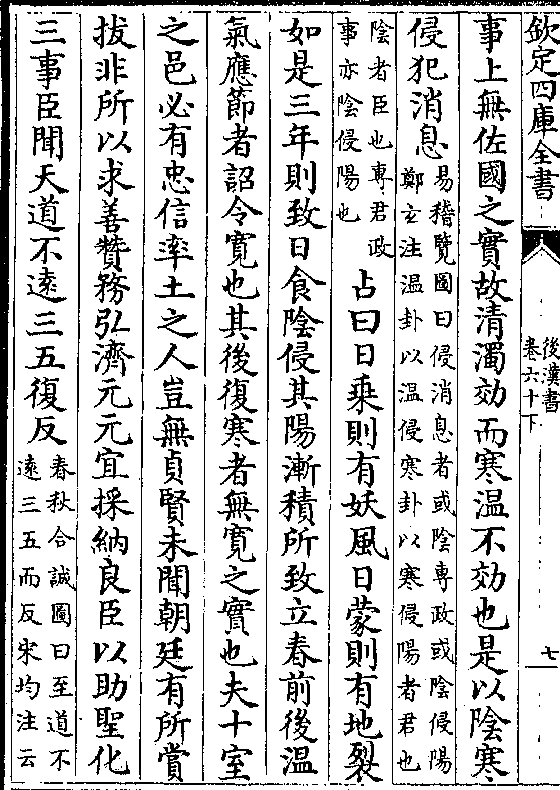 欽定四庫全書
後漢書
卷六十下
七
事上無佐國之實故清濁効而寒温不効也是以陰寒
侵犯消息
易稽覽圖曰侵消息者或陰專政或陰侵陽
鄭玄注温卦以温侵寒卦以寒侵陽者君也
陰者臣也專君政
事亦陰侵陽也
占曰日乗則有妖風日蒙則有地裂
如是三年則致日食陰侵其陽漸積所致立春前後温
氣應節者詔令寛也其後復寒者無寛之實也夫十室
之邑必有忠信率土之人豈無貞賢未聞朝廷有所賞
拔非所以求善贊務弘濟元元宜採納良臣以助聖化
三事臣聞天道不逺三五復反
春秋合誠圖曰至道不
逺三五而反宋均注云